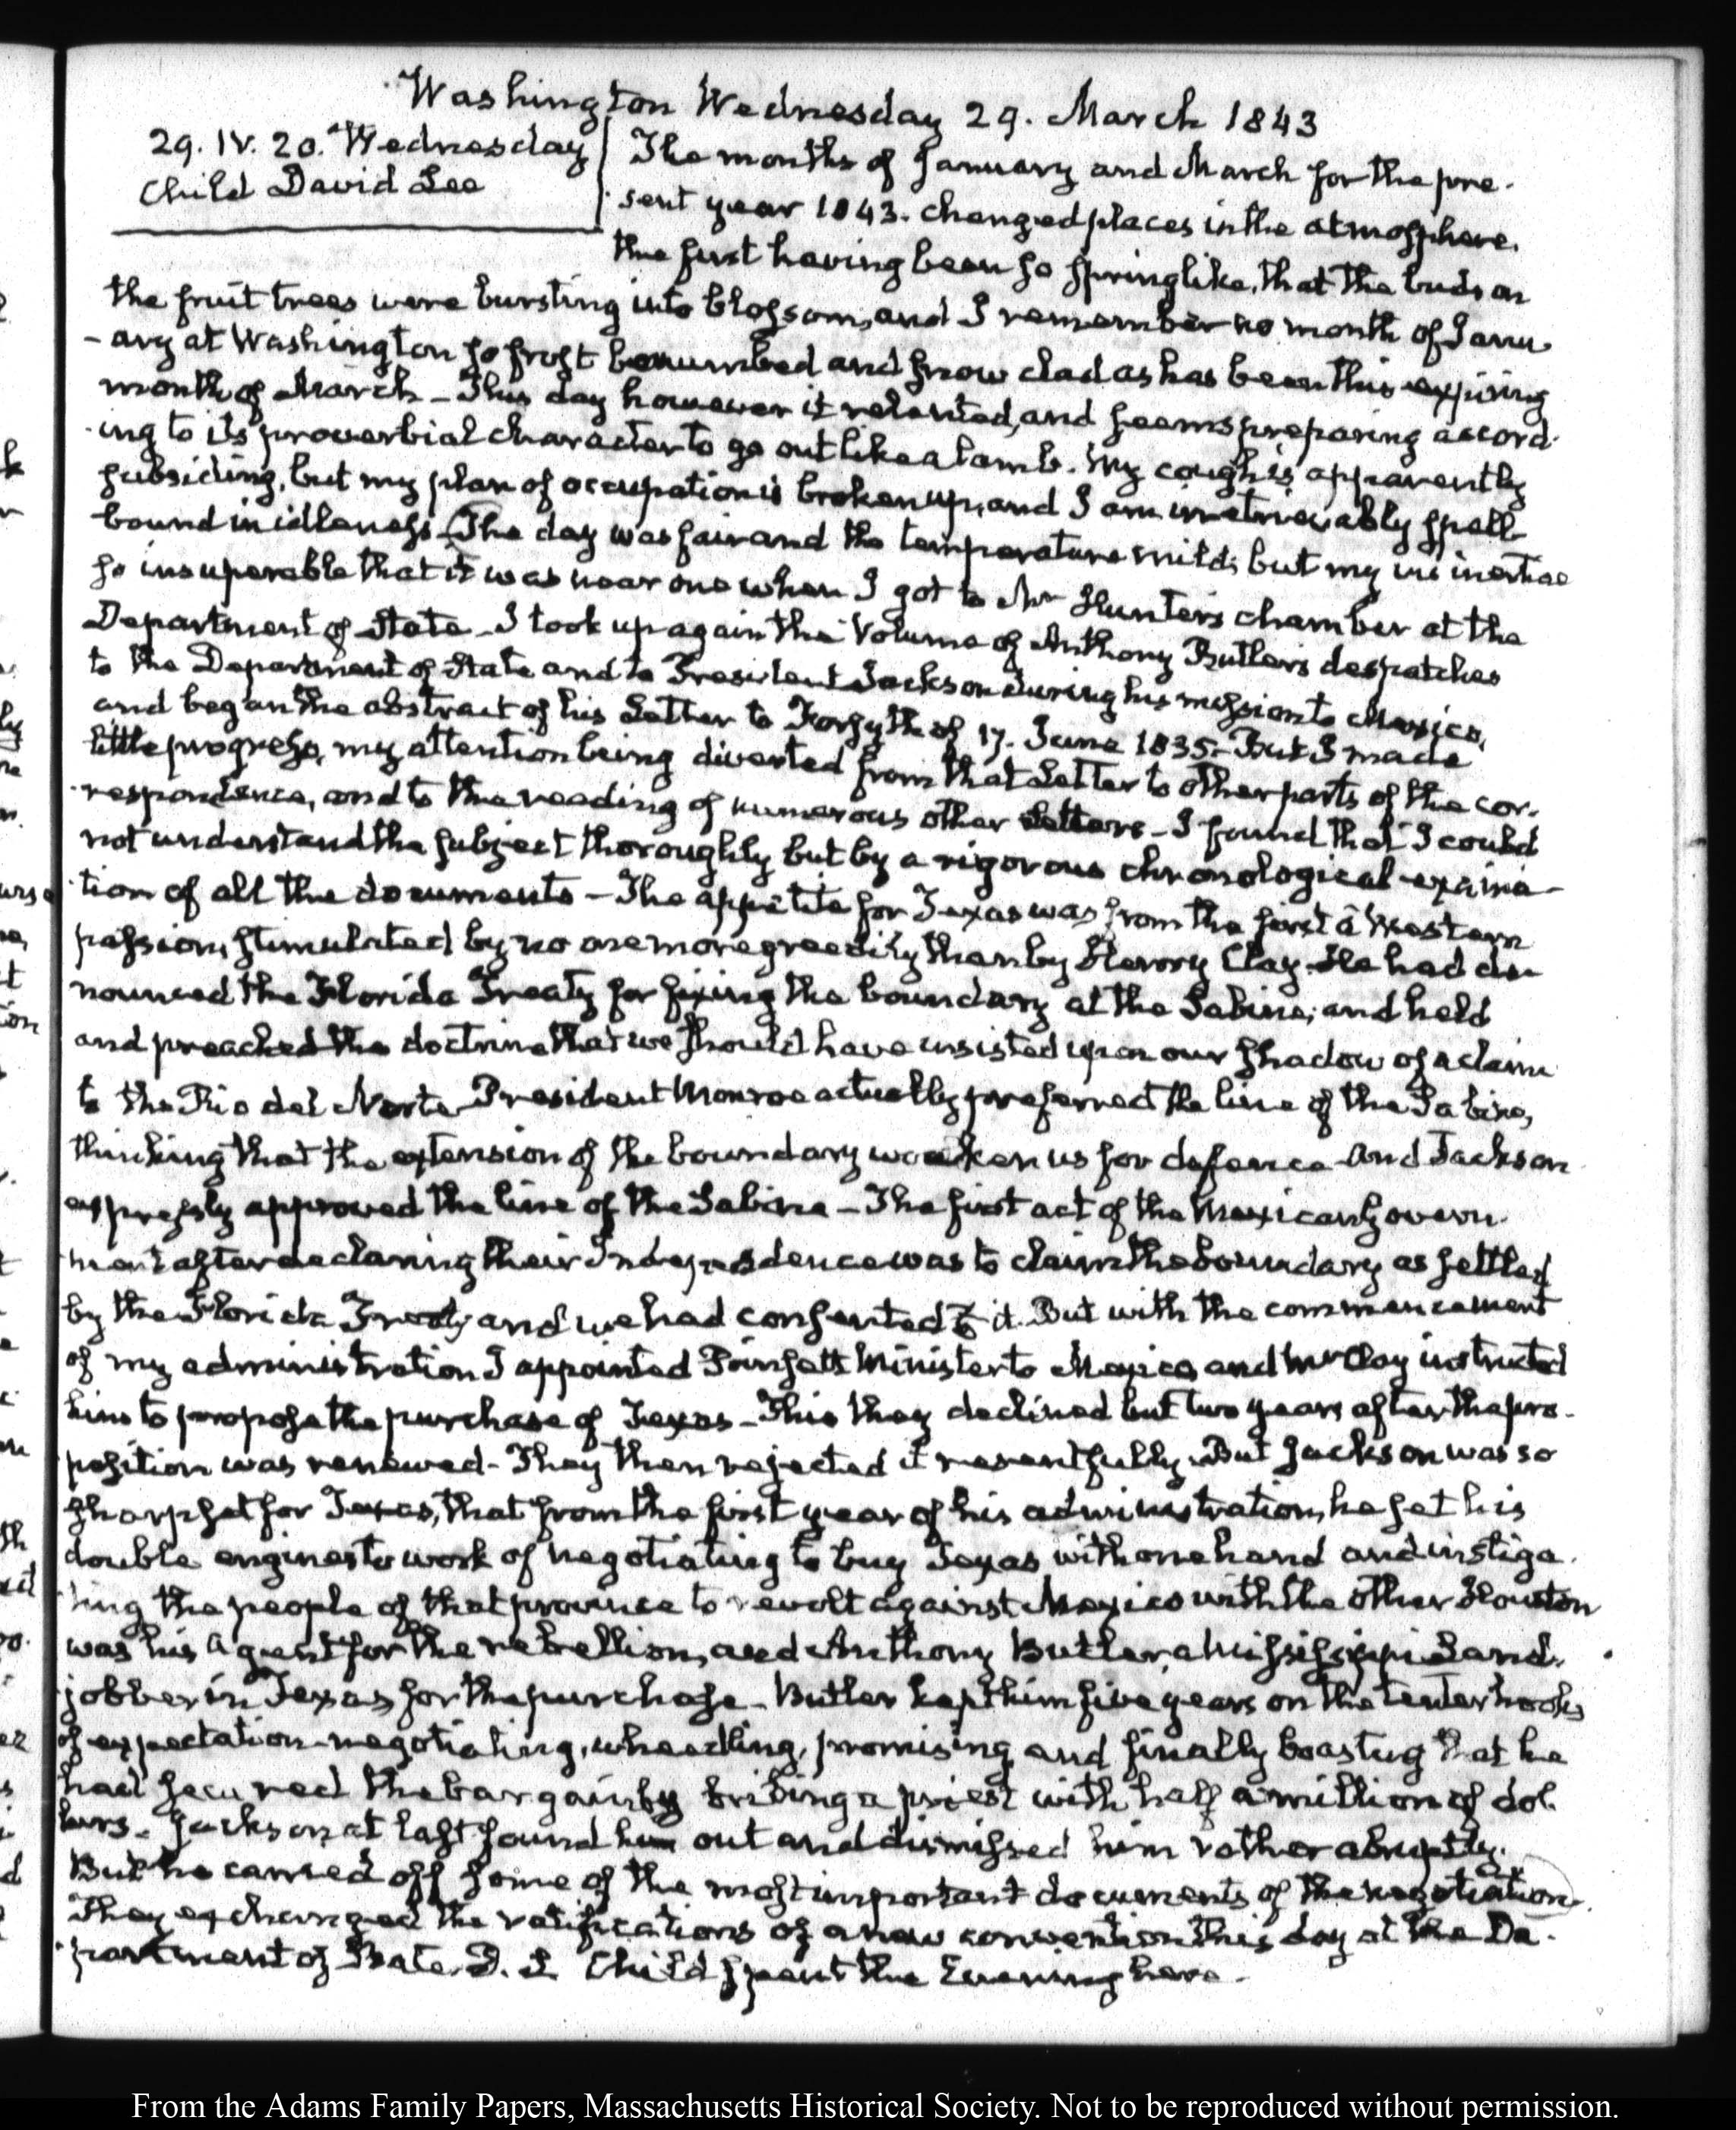 Washington Wednesday 29. March 1843
29. IV. 20. Wednesday
Child David Lee
The months of January and March for the pre-
sent year 1843. changed places in the atmosphere.
the first having been so springlike, that the buds on
the fruit trees were bursting into blossom, and I remember no month of Janu-
-ary at Washington so frost benumbed and snow clad as has been this expiring
month of March - This day however it relented, and seems preparing accord-
ing to its proverbial character to go out like a lamb. My cough is apparently
subsiding, but my plan of occupation is broken up, and I am irretrievably spell-
bound in idleness - The day was fair and the temperature mild; but my vis inertiae
so insuperable that it was near one when I got to Mr Hunter's chamber at the
Department of State - I took up again the Volume of Anthony Butler's despatches
to the Department of State and to President Jackson during his mission to Mexico,
and began the abstract of his Letter to Forsyth of 17. June 1835 - But I made
little progress, my attention being diverted from that Letter to other parts of the cor-
respondence, and to the reading of numerous other Letters - I found that I could
not understand the subject thoroughly but by a rigorous chronological examina-
tion of all the documents - The appetite for Texas was from the first a Western
passion, stimulated by no one more greedily than by Henry Clay. He had de-
nounced the Florida Treaty for fixing the boundary at the Sabine; and held
and preached the doctrine that we should have insisted upon our shadow of a claim
to the Rio del Norte - President Monroe actually preferred the line of the Sabine,
thinking that the extension of the boundary weaken us for defence and Jackson
expressly approved the line of the Sabine - The first act of the Mexican Govern-
ment after declaring their Independence was to claim the boundary as settled
by the Florida Treaty and we had consented to it. But with the commencement
of my administration I appointed Poinsett Minister to Mexico and Mr Clay instructed
him to propose the purchase of Texas - This they declined but two years after the pro-
position was renewed - They then rejected it resentfully. But Jackson was so
sharp set for Texas, that from the first year of his administration, he set his
double engines to work of negotiating to buy Texas with one hand and instiga-
ting the people of that province to revolt against Mexico with the other Houston
was his Agent for the rebellion, and Anthony Butler, a Mississippi Land-
jobber in Texas for the purchase - Butler kept him five years on the tenter hooks
of expectation negotiating, wheedling, promising and finally boasting that he
had secured the bargain by bribing a priest with half a million of dol-
lars - Jackson at last found him out and dismissed him rather abruptly.
But he carried off some of the most important documents of the negotiation.
They exchanged the ratifications of a new convention this day at the De-
partment of State. D. L Child spent the Evening here -
From the Adams Family Papers, Massachusetts Historical Society. Not to be reproduced without permission.